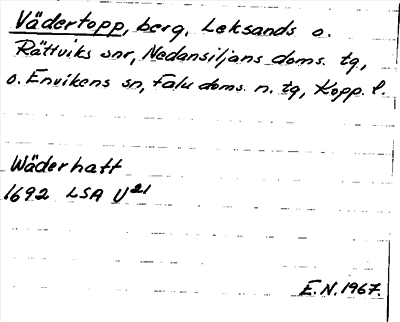 Vädertopp, berg, Leksands o.
Rättviks snr, Nedansiljans doms. tg,
o. Envikens sn, Falu doms. n. tg, Kopp. l.
Wäderhatt
1692 LSA U21
E.N. 1967.